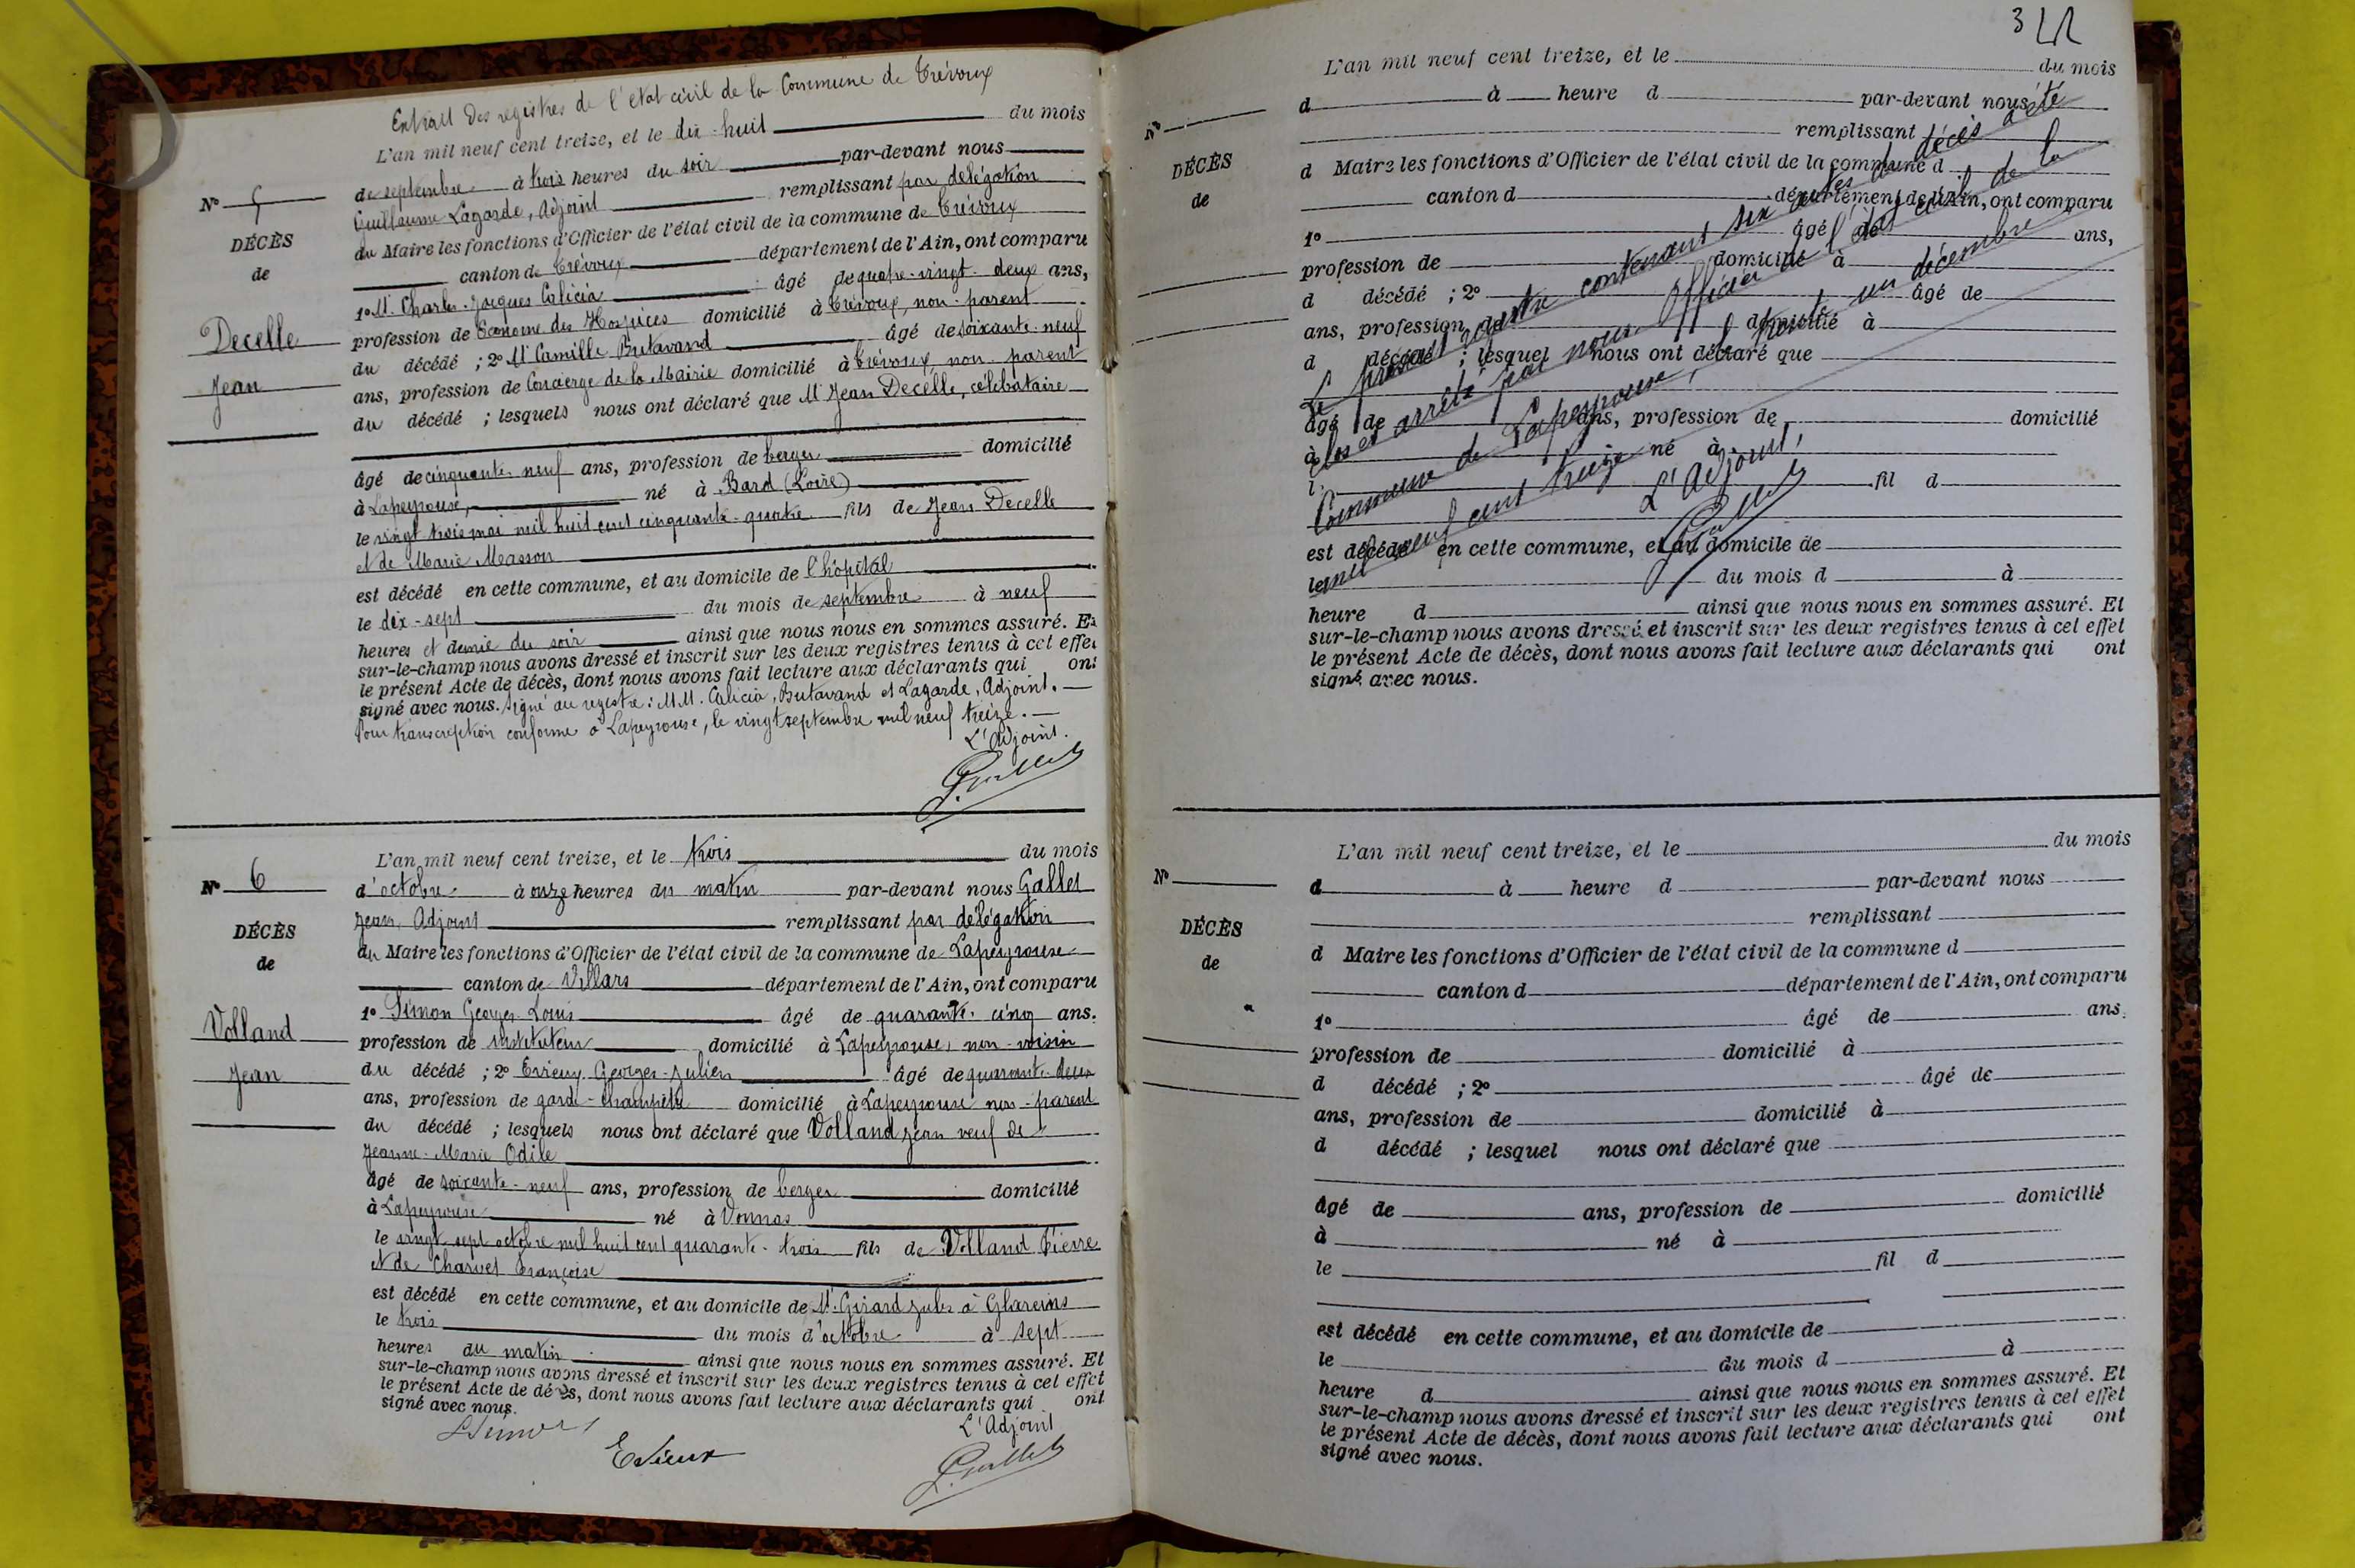 Extrait des registres de l'état civil de la Commune de Trévoux
L'an mil neuf cent treize, et le dix-huit du mois
de septembre à trois heures du soir par-devant nous
Guillaume Lagarde, Adjoint remplissant par délégation
du Maire les fonctions d'Officier de l'état civil de la commune de Trévoux
canton de Trévoux département de l'Ain, ont comparu
1º M. Charles-Jacques Calicia âgé de quatre-vingt-deux ans,
profession de Econome des Hospices domicilié à Trévoux, non-parent
du décédé ; 2º M. Camille Butavand âgé de soixante-neuf
ans, profession de Concierge de la Mairie domicilié à Trévoux, non-parent
du décédé ; lesquels nous ont déclaré que M. Jean Decelle, célibataire
Nº 5
DÉCÈS
de
Decelle
Jean
âgé de cinquante-neuf ans, profession de berger domicilié
à Lapeyrouse, né à Bard (Loire)
le vingt trois mai mil huit cent cinquante-quatre fils de Jean Decelle
et de Marie Masson
est décédé en cette commune, et au domicile de l'hôpital
le dix-sept du mois de septembre à neuf
heures et demie du soir ainsi que nous nous en sommes assuré. Et
sur-le-champ nous avons dressé et inscrit sur les deux registres tenus à cet effet
le présent Acte de décès, dont nous avons fait lecture aux déclarants qui ont
signé avec nous. Signé au registre : M.M. Calicia, Butavand et Lagarde, Adjoint.
Pour transcription conforme à Lapeyrouse, le vingt septembre mil neuf treize.
L'Adjoint.
L'an mil neuf cent treize, et le trois du mois
Nº 6
DÉCÈS
de
Volland
Jean
d'octobre à onze heures du matin par-devant nous Gallet
Jean, Adjoint remplissant par délégation
du Maire les fonctions d'Officier de l'état civil de la commune de Lapeyrouse
canton de Villars département de l'Ain, ont comparu
1º Simon Georges Louis âgé de quarante-cinq ans.
profession de instituteur domicilié à Lapeyrouse, non-voisin
du décédé ; 2º Georges-Julien âgé de quarante-deux
ans, profession de garde-champêtre domicilié à Lapeyrouse non-parent
du décédé ; lesquels nous ont déclaré que Volland Jean veuf de
Jeanne-Marie Odile
âgé de soixante-neuf ans, profession de berger domicilié
à Lapeyrouse né à Vonnas
le vingt sept octobre mil huit cent quarante-trois fils de Volland Pierre
et de Charvet Françoise
est décédé en cette commune, et au domicile de M. Girard Jules à Glareins
le trois du mois d'octobre à sept
heures du matin ainsi que nous nous en sommes assuré. Et
sur-le-champ nous avons dressé et inscrit sur les deux registres tenus à cet effet
le présent Acte de décès, dont nous avons fait lecture aux déclarants qui ont
signé avec nous.
L'Adjoint
L'an mil neuf cent treize, et le du mois
d à heure d par-devant nous
remplissant
Nº
DÉCÈS
de
d Maire les fonctions d'Officier de l'état civil de la commune d
canton d département de l'Ain, ont comparu
1º âgé de ans,
profession de domicilié à
d décédé ; 2º âgé de
ans, profession de domicilié à
d décédé ; lesquel nous ont déclaré que
âgé de ans, profession de domicilié
à né à
l fil d
est décédé en cette commune, et au domicile de
le du mois d à
heure d ainsi que nous nous en sommes assuré. Et
sur-le-champ nous avons dressé et inscrit sur les deux registres tenus à cet effet
le présent Acte de décès, dont nous avons fait lecture aux déclarants qui ont
signé avec nous.
Le présent registre contenant six actes de décès a été
clos et arrêté par nous Officier de l'état civil de la
Commune de Lapeyrouse, le trente un décembre
mil neuf cent treize
L'Adjoint,
L'an mil neuf cent treize, et le du mois
Nº
DÉCÈS
de
d à heure d par-devant nous
remplissant
d Maire les fonctions d'Officier de l'état civil de la commune d
canton d département de l'Ain, ont comparu
1º âgé de ans.
profession de domicilié à
d décédé ; 2º âgé de
ans, profession de domicilié à
d décédé ; lesquel nous ont déclaré que
âgé de ans, profession de domicilié
à né à
le fil d
est décédé en cette commune, et au domicile de
le du mois d à
heure d ainsi que nous nous en sommes assuré. Et
sur-le-champ nous avons dressé et inscrit sur les deux registres tenus à cet effet
le présent Acte de décès, dont nous avons fait lecture aux déclarants qui ont
signé avec nous.